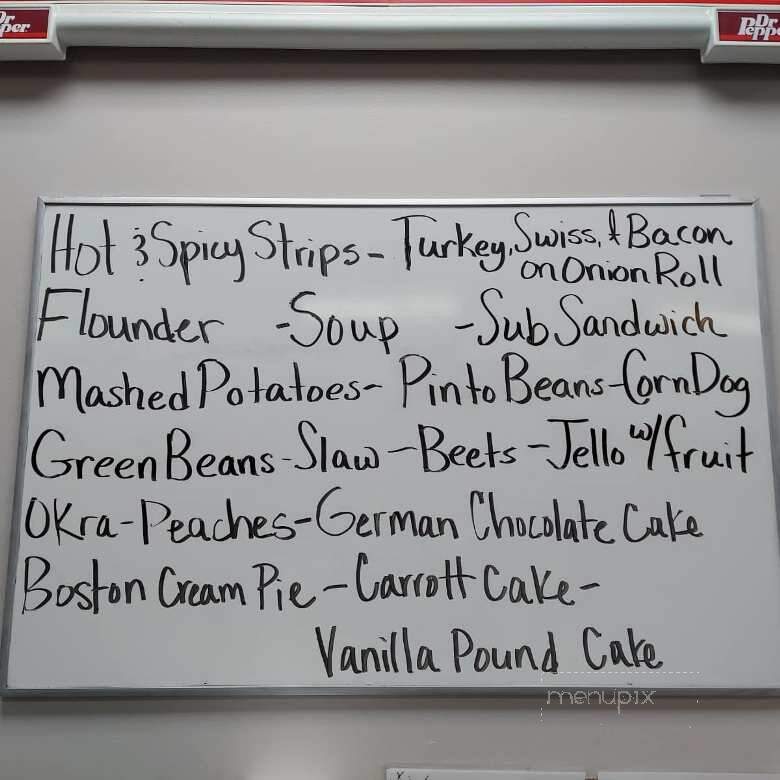 Dr Pepper
Dr Pepper
Hot & Spicy Strips - Turkey, Swiss, & Bacon
on Onion Roll
Flounder - Soup - Sub Sandwich
Mashed Potatoes - Pinto Beans - Corn Dog
Green Beans - Slaw - Beets - Jello w/ fruit
Okra - Peaches - German Chocolate Cake
Boston Cream Pie - Carrott Cake -
Vanilla Pound Cake
menupix